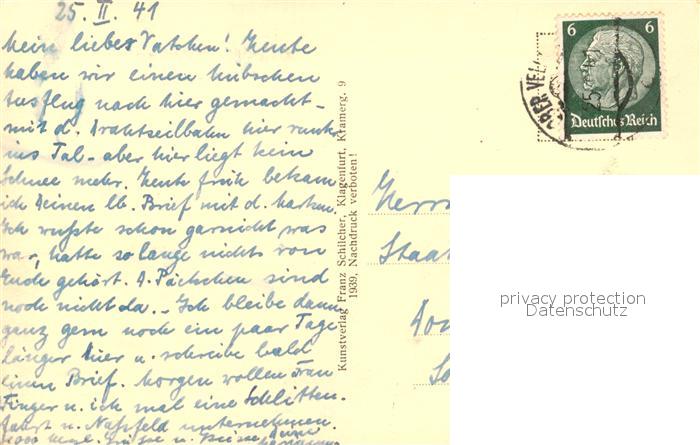 25. II. 41
Mein liebes Vatchen! Heute
haben wir einen hübschen
Ausflug nach hier gemacht –
mit d. Drahtseilbahn hier runter
ins Tal – aber hier liegt kein
Schnee mehr. Heute früh bekam
ich Deinen lb. Brief mit d. Karten.
Ich wußte schon garnicht was
war, hatte so lange nichts von
Euch gehört. D. Päckchen sind
noch nicht da. – Ich bleibe dann
ganz gern noch ein paar Tage
länger hier u. schreibe bald
einen Brief. Morgen wollen Frau
Finger u. ich mal eine Schlitten-
fahrt n. Naßfeld unternehmen.
1000 Grüße u. Küsse
Kunstverlag Franz Schilcher, Klagenfurt, Kramerg. 9
1939. Nachdruck verboten!
6 6
Deutsches Reich
Herrn
Staat
privacy protection
Datenschutz